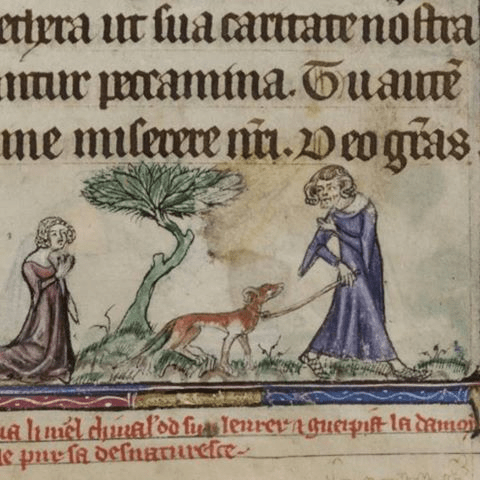 ethera ut sua caritate nostra
ntur peccamina. Tu autē
ine miserere nr̄i. Deo gr̄as
ua li uiel chiual' od sun leurer & guerpist la damoi
le pur sa desnaturesce